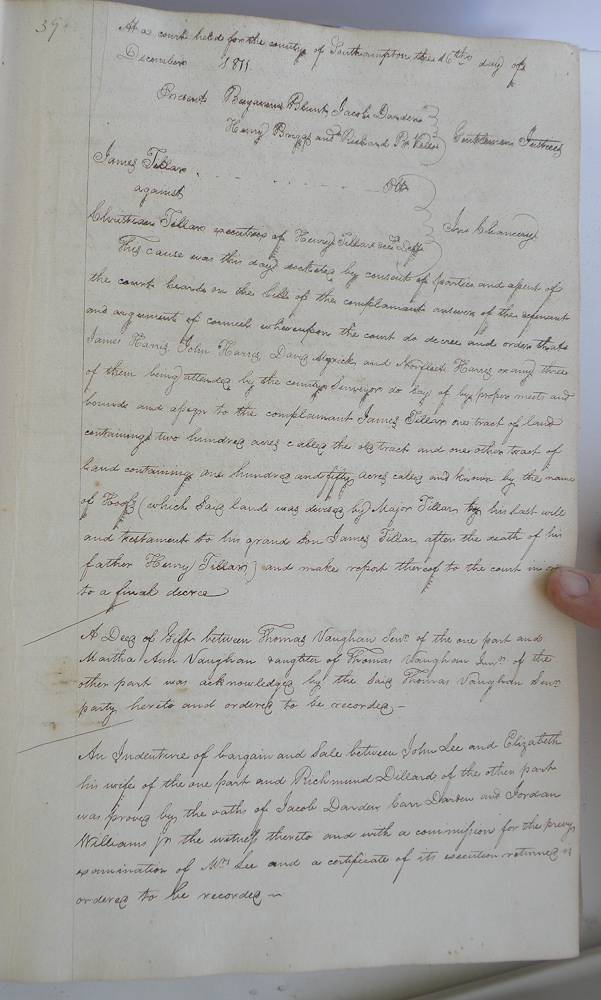 39
At a court held for the county of Southampton the 16th day of
December 1811
Present Benjamin Blunt, Jacob Darden
Henry Briggs and Richard P. Gentlemen Justices
James Tillar Plt
against
In Chancery
Christian Tillar executrix of Henry Tillar decd Deft
This cause was this day docketed by consent of parties and assent of
the court heard on the bill of the complainant answer of the defendant
and arguments of counsel whereupon the court do decree and order that
James Harris, John Harris, David Myrick, and Norfleet Harris or any three
of them being attended by the county Surveyor do lay of by proper meets and
bounds and assign to the complainant James Tillar one tract of land
containing two hundred acres called the old tract and one other tract of
land containing one hundred and fifty acres called and known by the name
of (which said lands was devised by Major Tillar by his last will
and testament to his grand son James Tillar after the death of his
father Henry Tillar) and make report thereof to the court in or
to a final decree
A Deed of Gift between Thomas Vaughan Senr of the one part and
Martha Ann Vaughan daughter of Thomas Vaughan Junr of the
other part was acknowledged by the said Thomas Vaughan Senr
party hereto and ordered to be recorded –
An Indenture of bargain and Sale between John Lee and Elizabeth
his wife of the one part and Richmund Dillard of the other part
was proved by the oaths of Jacob Darden Carr Darden and Jordan
Williams jr the witness thereto and with a commission for the privy
examination of Mrs Lee and a certificate of its execution returned
ordered to be recorded –